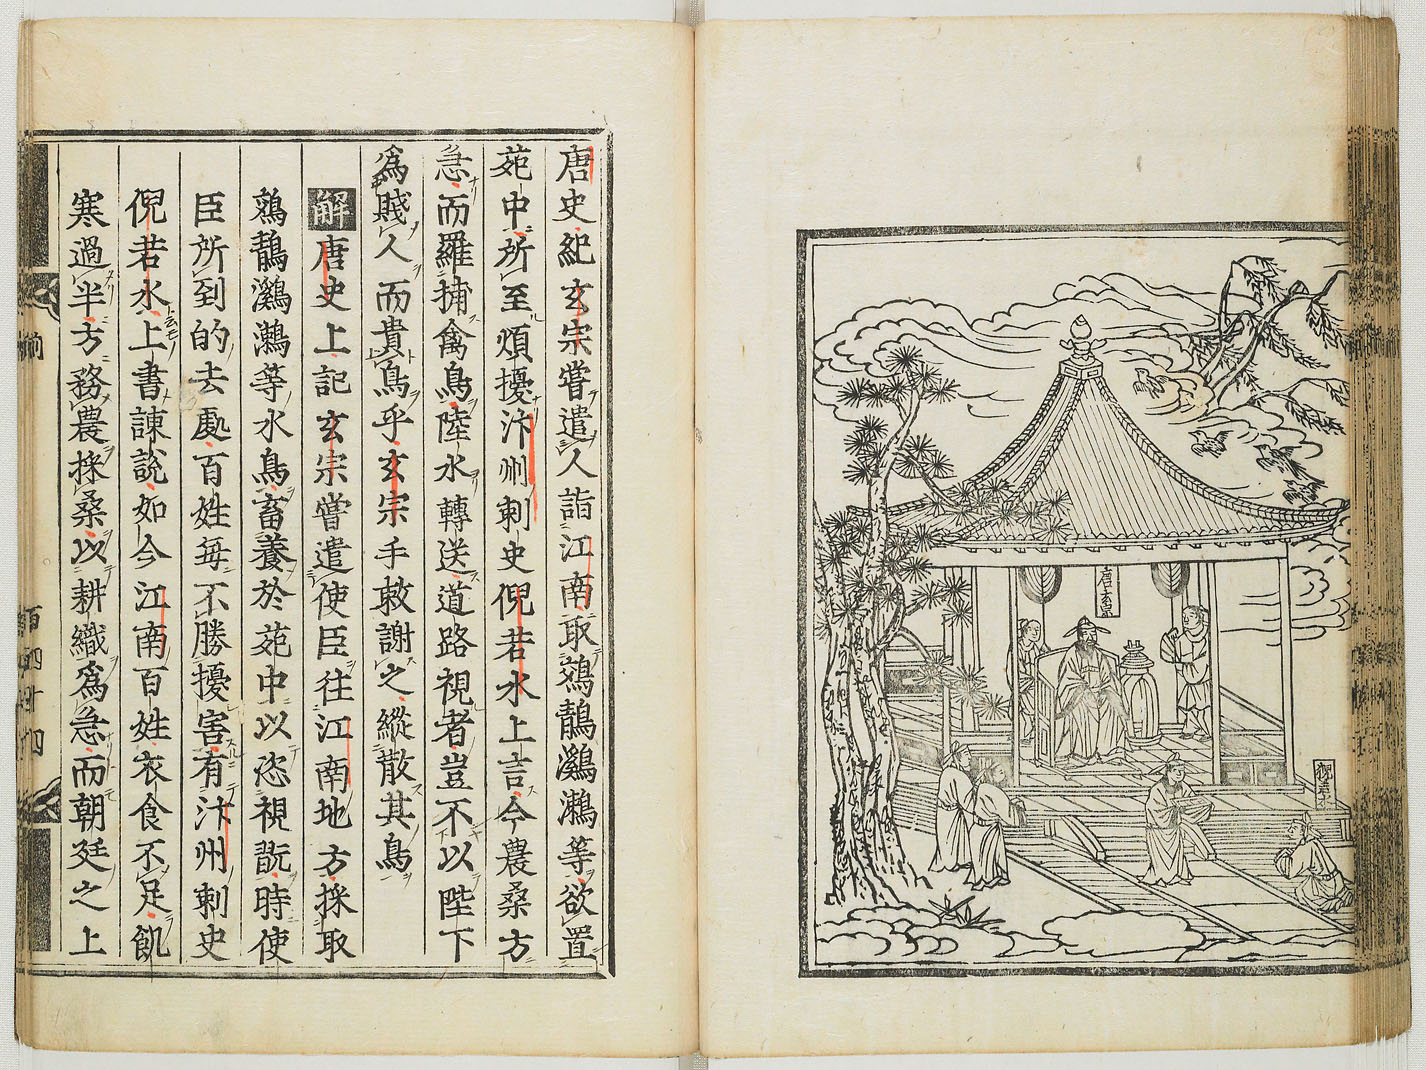 唐玄宗
倪若水
唐史紀玄宗嘗遣人詣江南取鵁鶄鸂鶒等欲置
苑中所至煩擾汴州刺史倪若水上言今農桑方
急而羅捕禽鳥陸水轉送道路視者豈不以陛下
爲賤人而貴鳥乎玄宗手敕謝之縱散其鳥
解唐史上記玄宗嘗遣使臣往江南地方採取
鵁鶄鸂鶒等水鳥畜養於苑中以恣視翫時使
臣所到的去處百姓每不勝擾害有汴州刺史
倪若水上書諫說如今江南百姓衣食不足飢
寒過半方務農採桑以耕織爲急而朝廷之上
前
百四十四